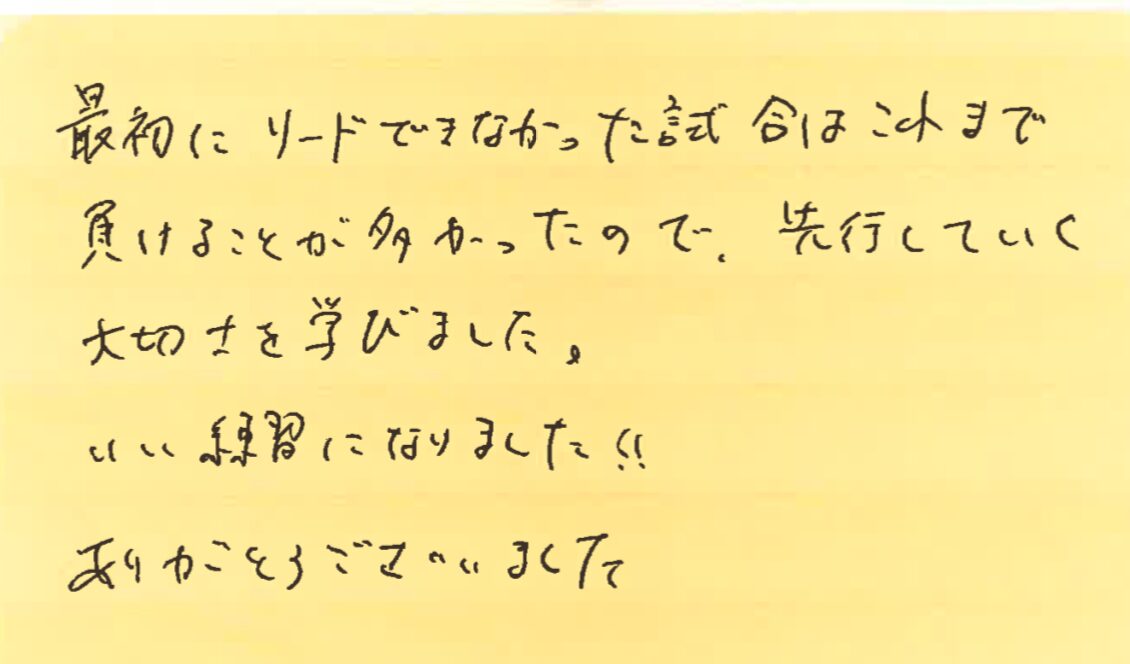 最初にリードできなかった試合はこれまで
負けることが多かったので、先行していく
大切さを学びました。
いい練習になりました!!
ありがとうございました